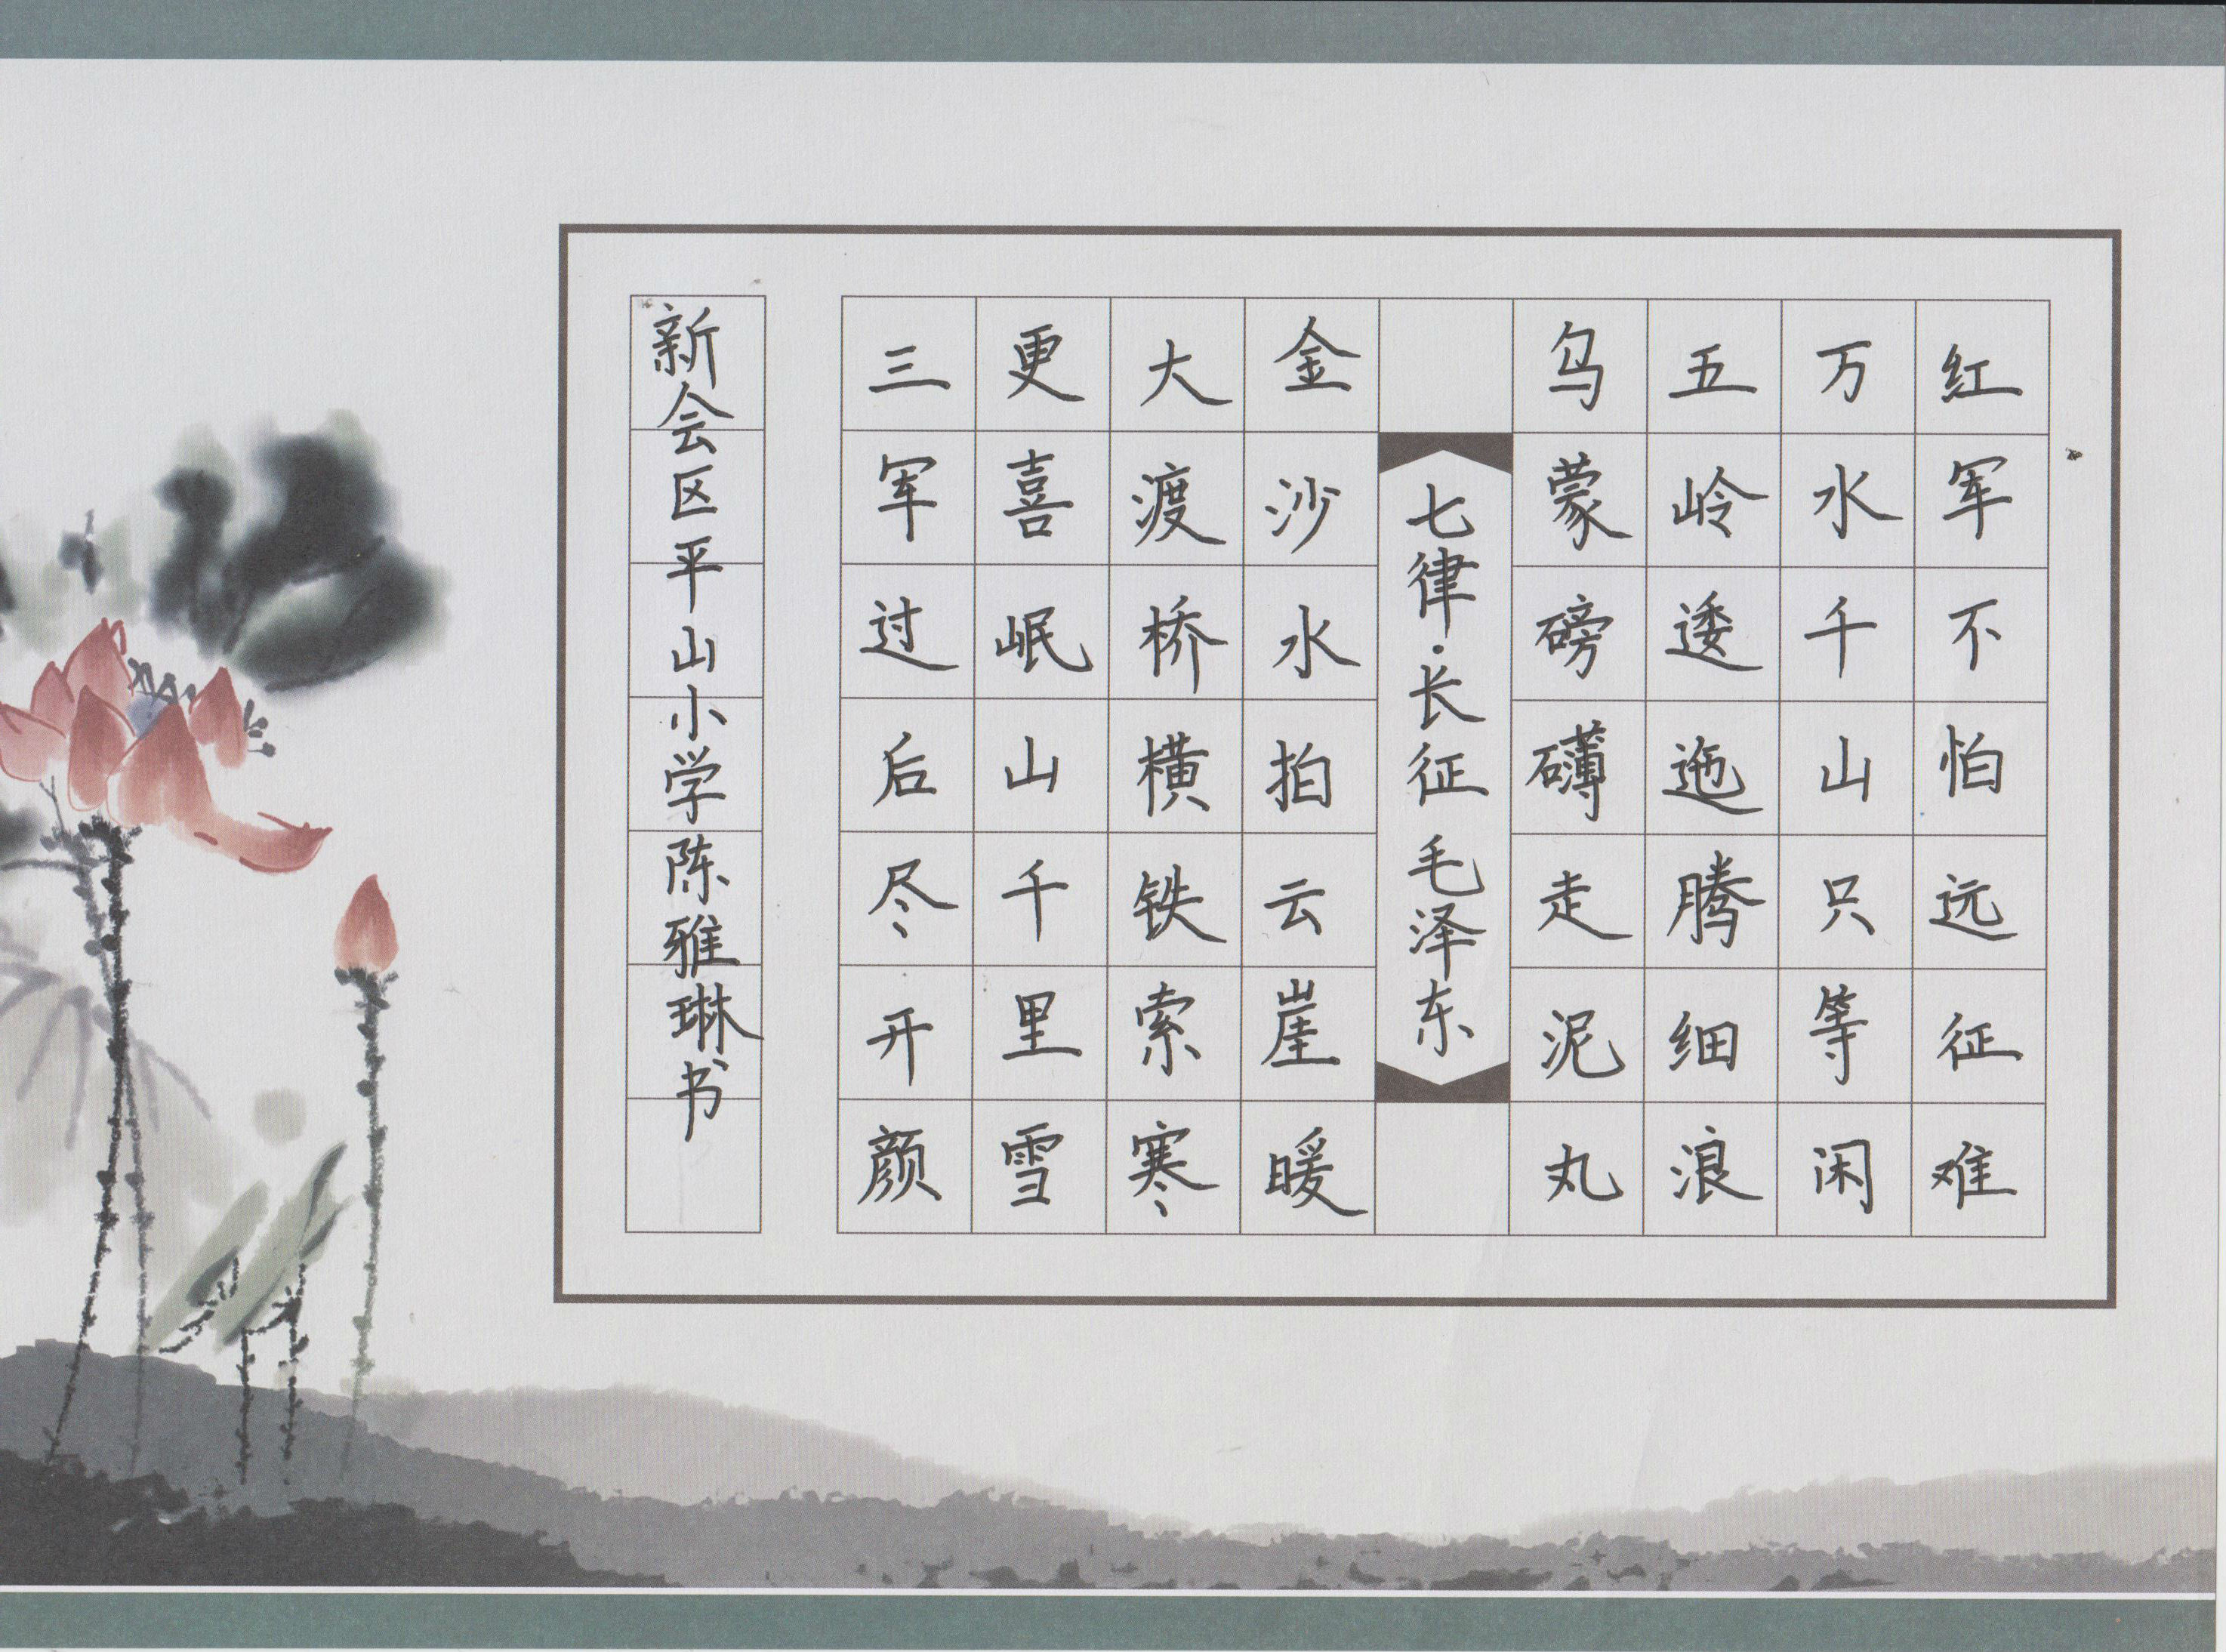 红军不怕远征难
万水千山只等闲
五岭逶迤腾细浪
乌蒙磅礴走泥丸
七律·长征 毛泽东
金沙水拍云崖暖
大渡桥横铁索寒
更喜岷山千里雪
三军过后尽开颜
新会区平山小学陈雅琳书